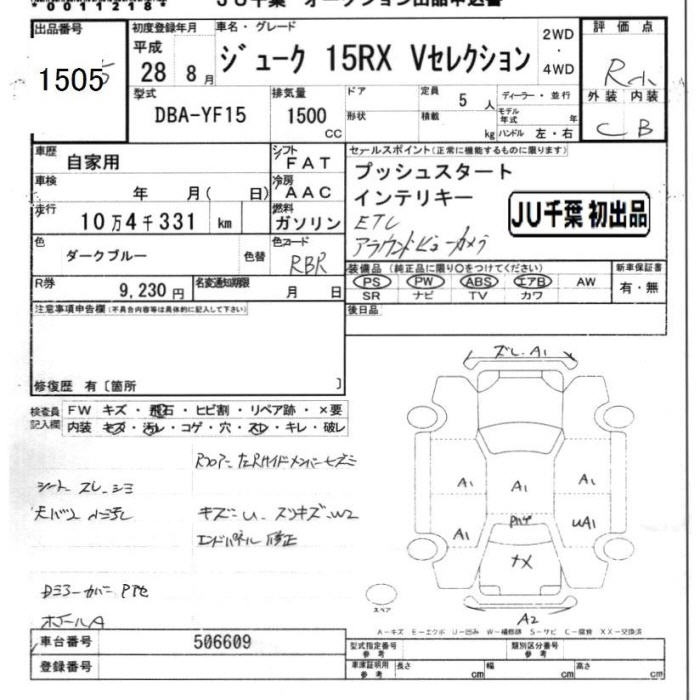 0011218
JU千葉 オークション出品申込書
出品番号 初度登録年月 車名・グレード 評価点
15055
平成 28 8月 ジューク 15RX Vセレクション 2WD・4WD
R小
外装 内装
C B
型式 排気量 ドア 定員 ディーラー・並行
DBA-YF15 1500 CC 形状 5人 積載 kg モデル年式 年 ハンドル 左・右
車歴 自家用 シフト FAT
セールスポイント(正常に機能するものに限ります)
車検 年 月( 日) 冷房 AAC
プッシュスタート
インテリキー
走行 10万4千331 km 燃料 ガソリン
ETC
アラウンドビューカメラ
JU千葉 初出品
色 ダークブルー 色替 色コード RBR
装備品(純正品に限り○をつけてください) 新車保証書
PS PW ABS エアB AW 有・無
SR ナビ TV カワ
R券 9,230円 名変通知期限 月 日
後日品
注意事項申告欄(不具合内容等は具体的に記入して下さい)
修復歴 有〔箇所 〕
検査員記入欄 FW キズ・飛石・ヒビ割・リペア跡・×要
内装 キズ・汚レ・コゲ・穴・スレ・キレ・破レ
ズレ.A1
A1 A1 A1
A1 UA1
ナX
A2
シート スレ.シミ
キズ=U. スリキズ.W2
エンドパネル 修正
スペア
A−キズ E−エクボ U−凹み W−補修跡 S−サビ C−腐食 XX−交換済
車台番号 506609
登録番号
型式指定番号 参考 類別区分番号 参考
車庫証明用 参考 長さ cm 幅 cm 高さ cm